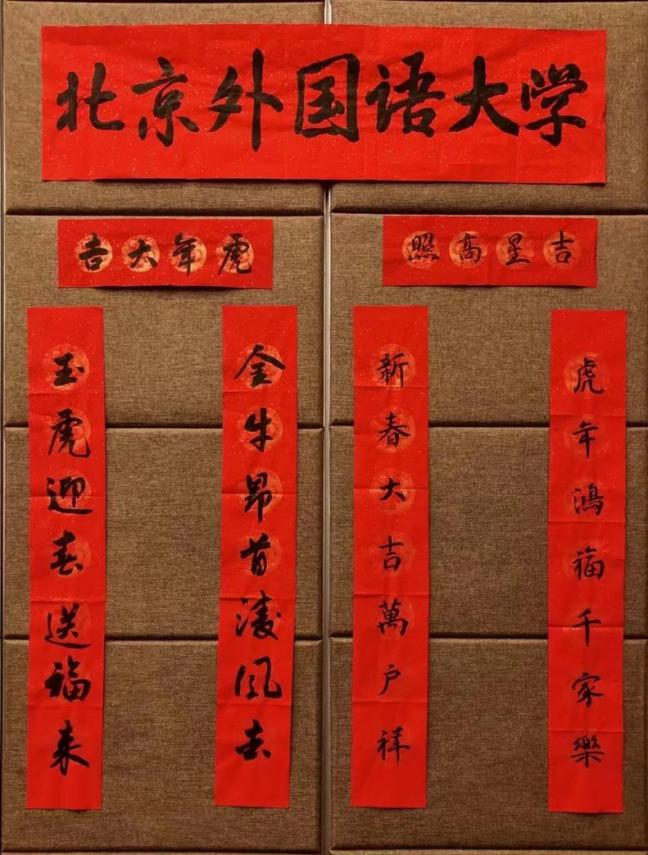 北京外国语大学
吉星高照
虎年鸿福千家樂
新春大吉萬户祥
虎年大吉
金牛昂首凌风去
玉虎迎春送福来